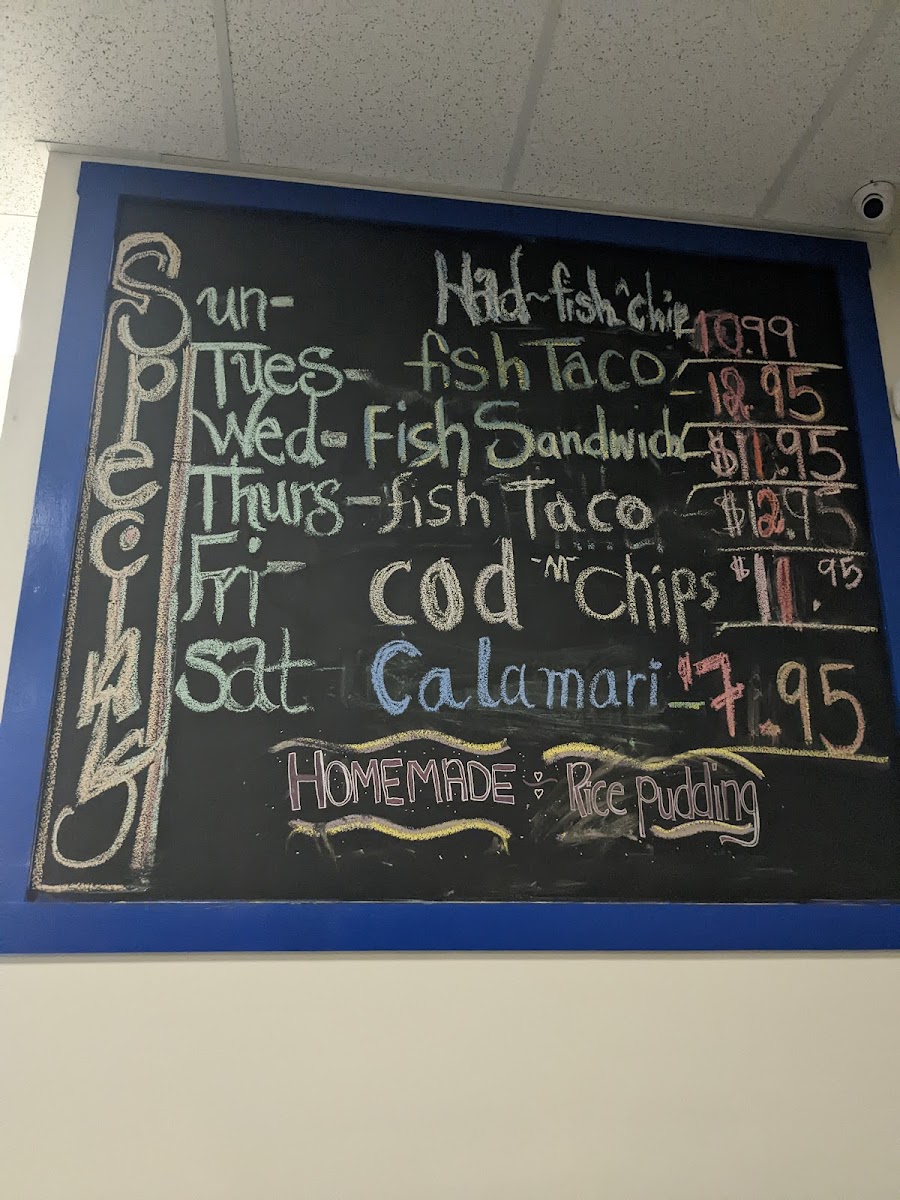 Specials
Sun- Had-fish ^ chip 10.99
Tues- fish Taco 12.95
Wed- Fish Sandwich $11.95
Thurs- fish Taco $12.95
Fri- Cod "N" Chips $11.95
Sat Calamari $7.95
HOMEMADE Rice pudding